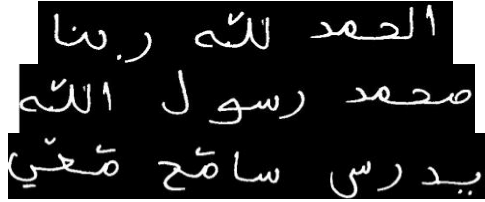 الحمد لله ربنا
محمد رسول الله
يدرس سامح معي